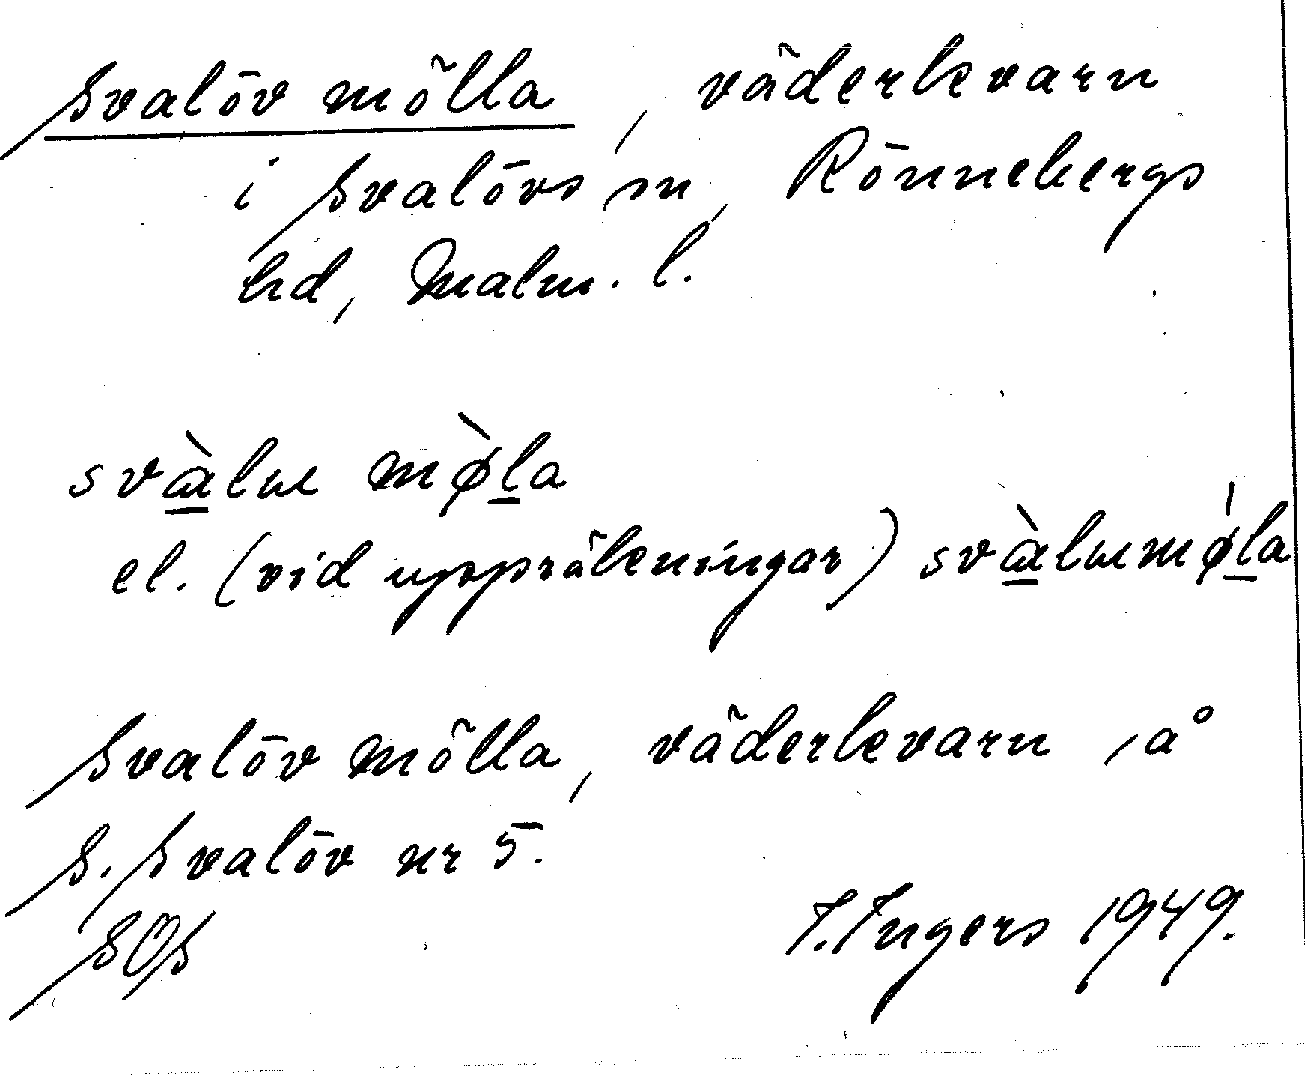 Svalöv mölla, väderkvarn
i Svalövs sn, Rönnebergs
hd, Malm. l.
el. (vid uppräkningar)
Svalöv mölla, väderkvarn, å
S. Svalöv nr 5.
SOS
I. Ingers 1949.